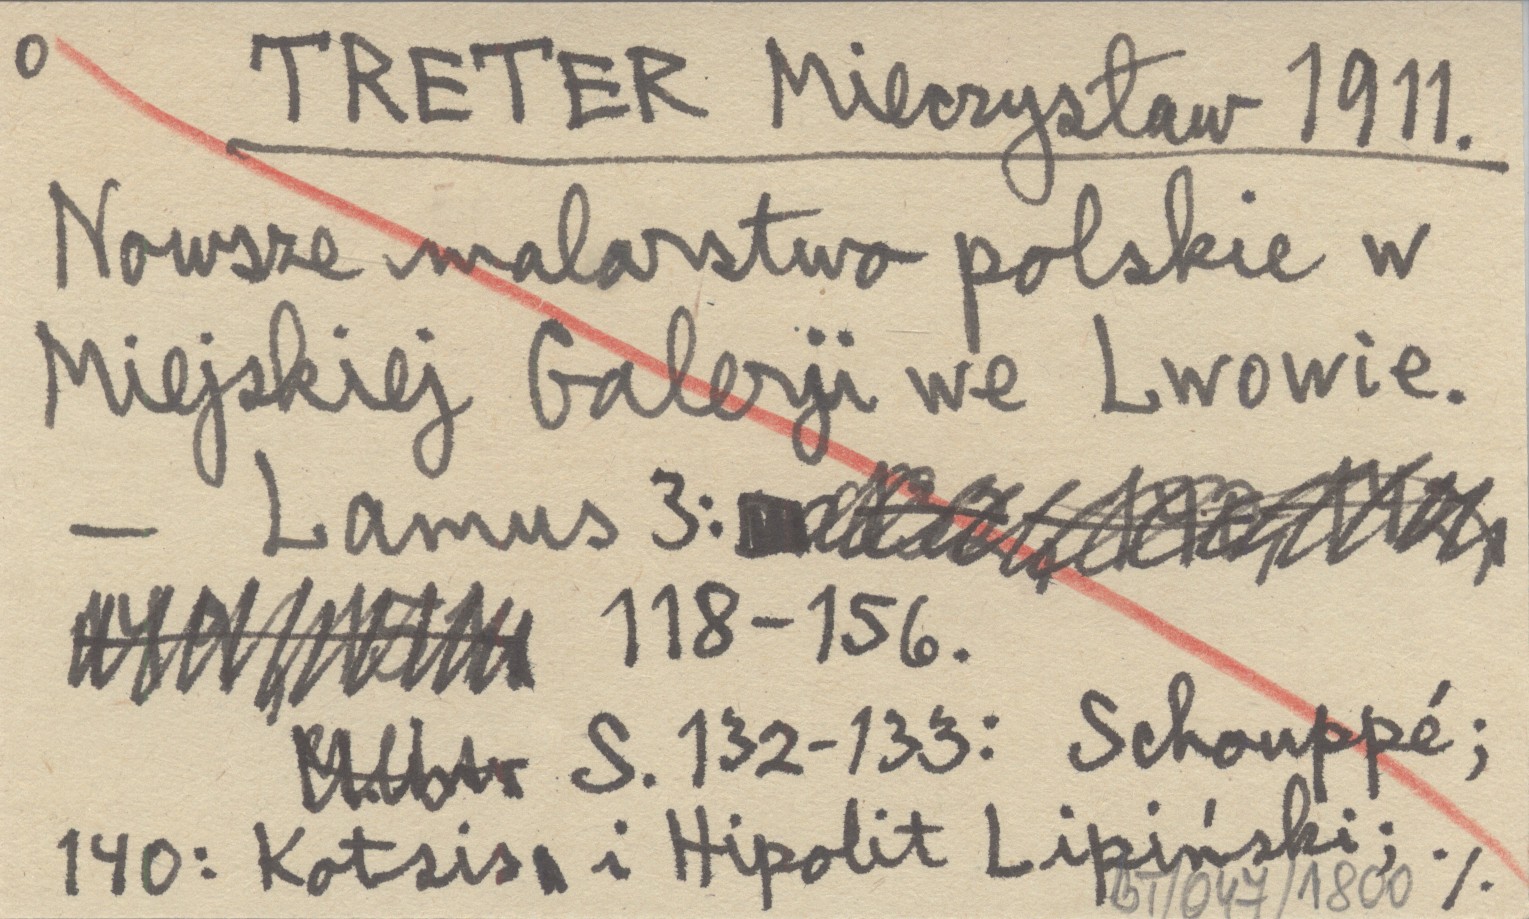 o TRETER Mieczysław 1911.
Nowsze malarstwo polskie w
Miejskiej Galerji we Lwowie.
— Lamus 3:
118-156.
S. 132-133: Schouppé;
140: Kotsis i Hipolit Lipiński; ·/.
BT/047/1800